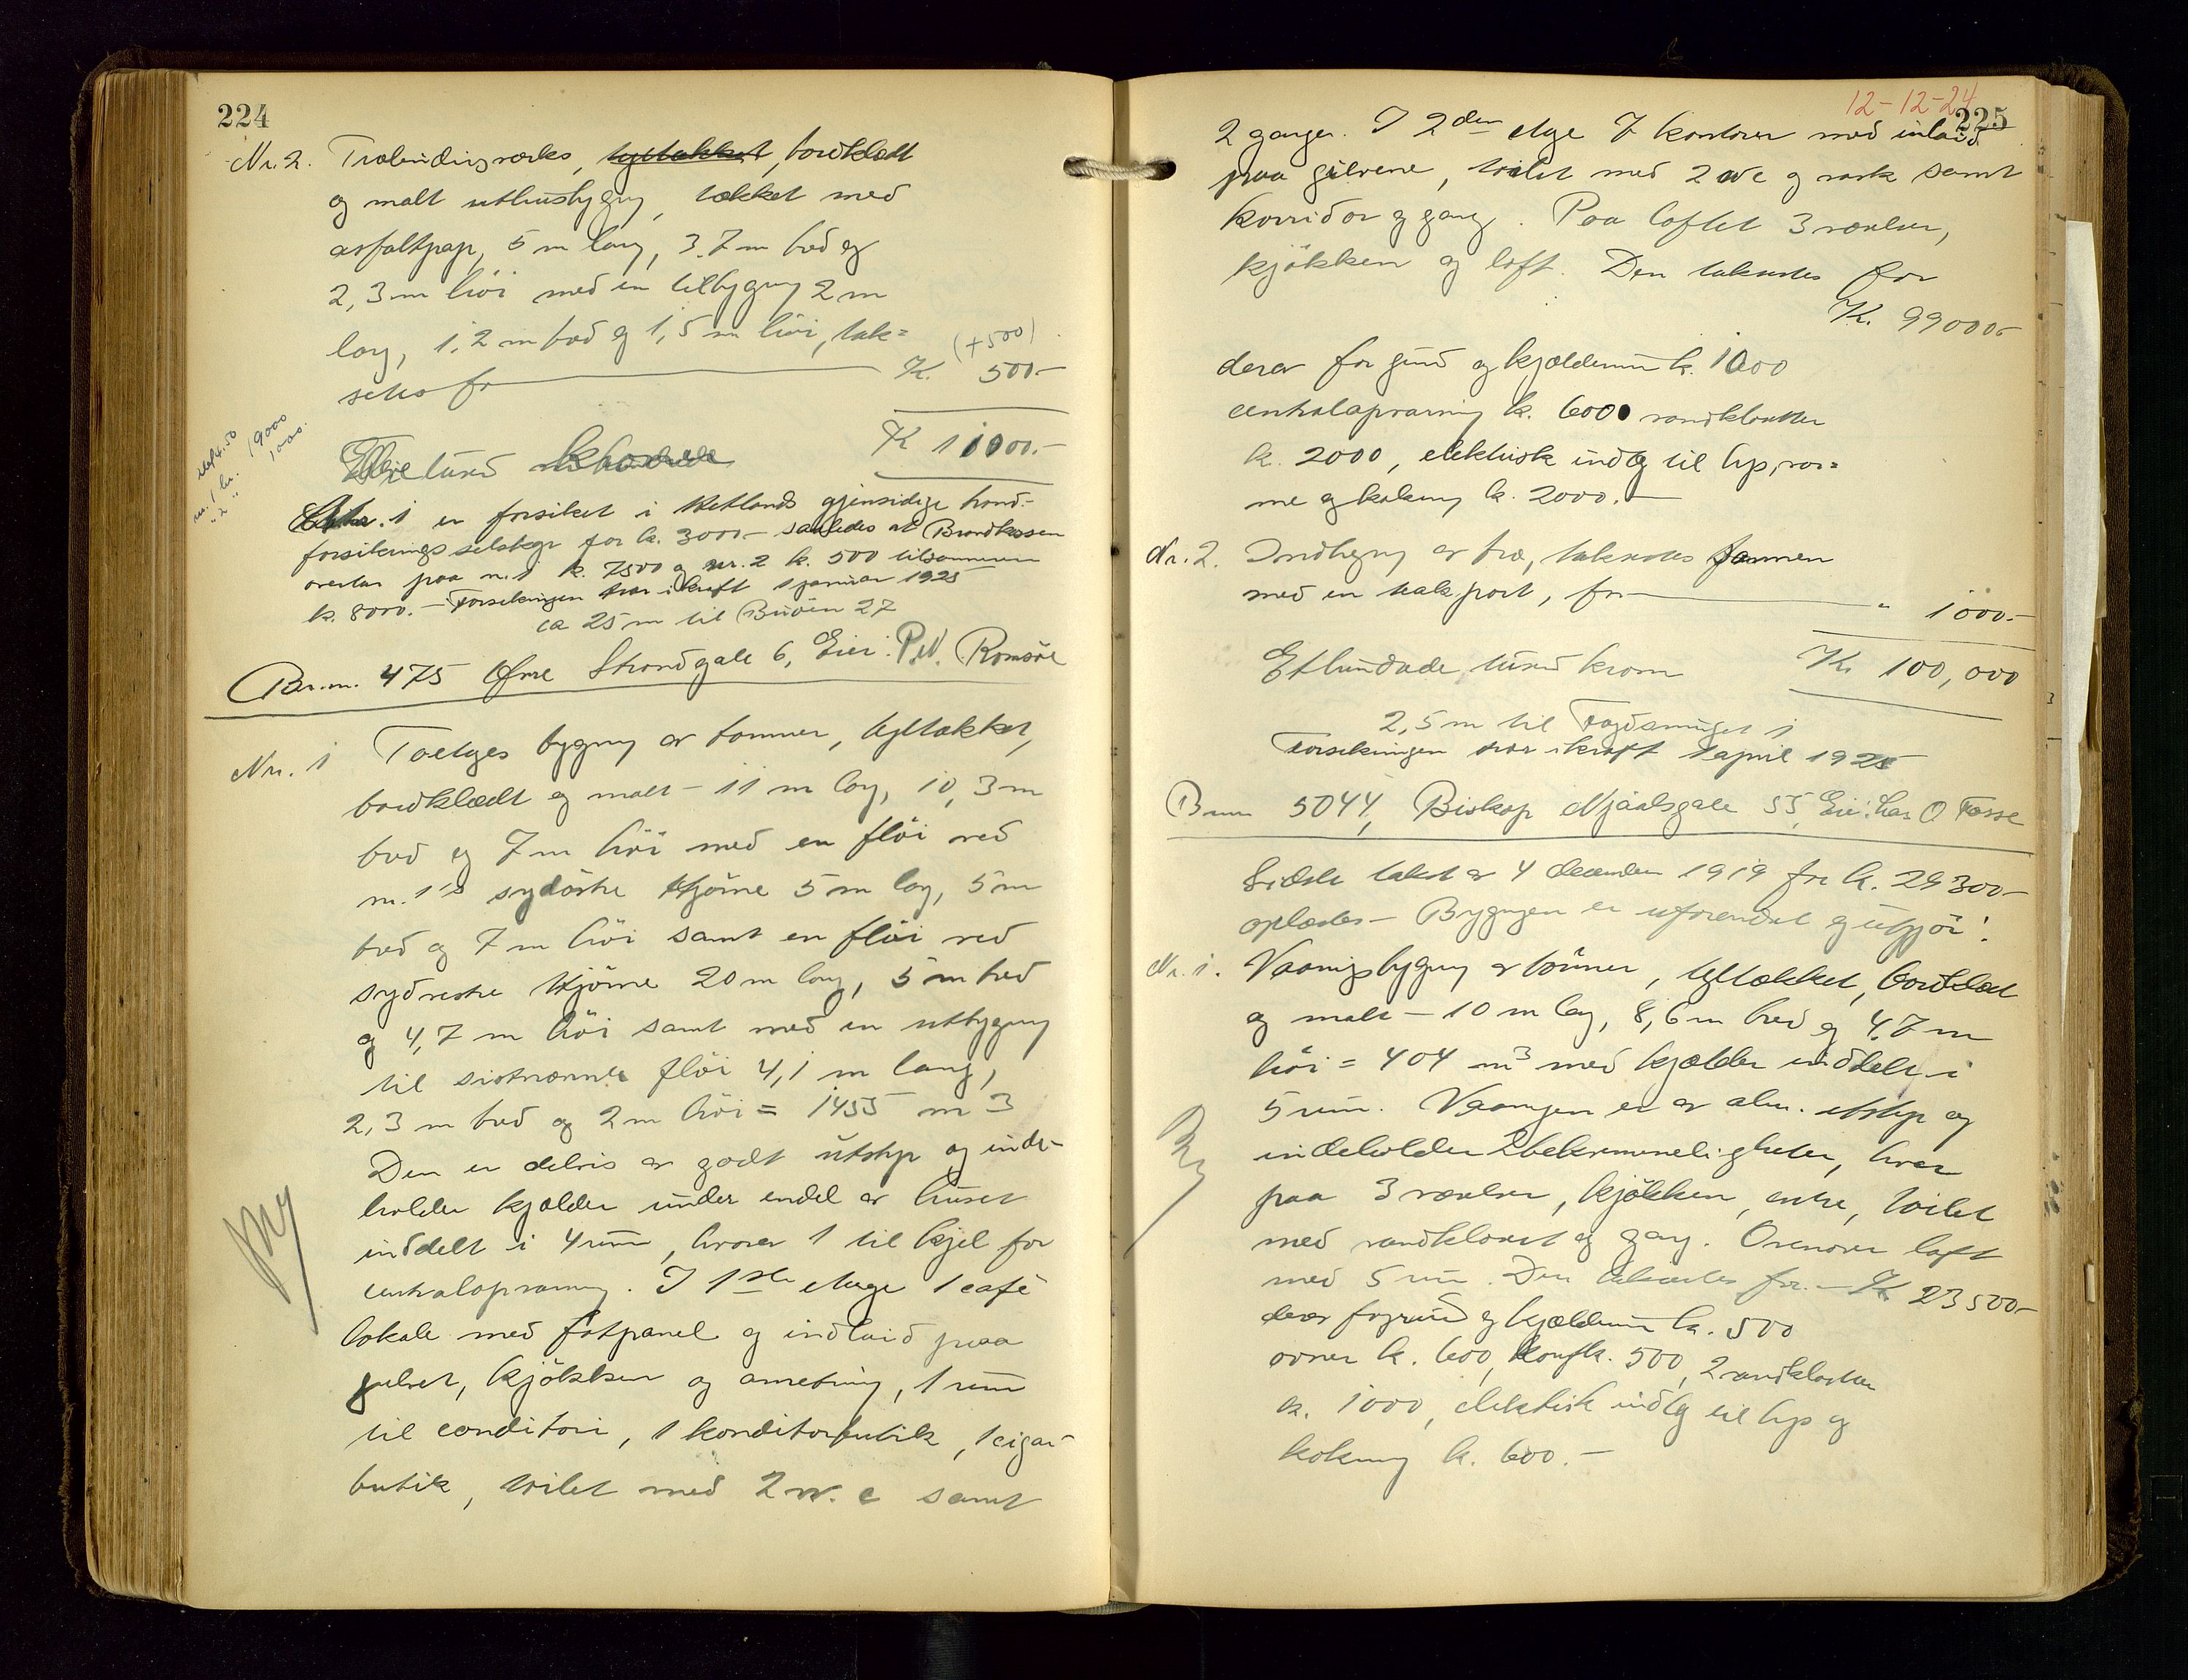 224
Nr. 2. Træbindingsverks, tegltækket, bordklædt
og malt uthusbygng, tækket med
asfaltpap, 5 m lang, 3.7 m bred og
2,3 m høi med en tilbygng 2 m
lang, 1,2 m bred og 1,5 m høi, tak=
seres for K. 500.-
(+500)
K 11000.-
Elleve tusend
nr. 1 kr. 19000
" 2 " 1000.
Nr. 1 er forsikret i Hetlands gjensidige brand-
forsikringsselskap for k. 3000.- saaledes at Brandkassen
overtar paa nr. 1 k. 7500 og nr. 2 k. 500 tilsammen
k. 8000.- Forsikringen trær i kraft 1 januar 1925
ca 25 m til Buøen 27
Br. nr. 475 Øvre Strandgate 6, Eier: P. N. Romsöe
Nr. 1 Toetges bygng av tømmer, tegltækket,
bordklædt og malt - 11 m lang, 10,3 m
bred og 7 m høi med en fløi ved
nr. 1's sydöstre hjörne 5 m lang, 5 m
bred og 7 m høi samt en fløi ved
sydvestre hjörne 20 m lang, 5 m bred
og 4,7 m høi samt med en utbygng
til sistnævnte fløi 4,1 m lang,
2,3 m bred og 2 m høi = 1455 m3
Den er delvis av godt utstyr og inde-
holder kjælder under endel av huset
inddelt i 4 rum, hvorav 1 til kjel for
centralopvarmng. I 1ste etage 1 café
lokale med fotpanel og indlaid paa
gulvet, kjökken og anretning, 1 rum
til conditori, 1 konditorbutik, 1 cigar-
butik, toilet med 2 w. c samt
12-12-24
225
2 ganger. I 2den etge 7 kontorer med inlaid
paa gulvene, toilet med 2 wc og vask samt
korridor og gang. Paa loftet 3 værelser,
kjökken og loft. Den takseres for
K. 99000.-
derav for grund og kjældermur k. 1000
centralopvarmng k. 6000 vandklosetter
k. 2000, elektrisk indlg til lys, var=
me og kokning k. 2000.-
Nr. 2. Indhegng av træ, takseres sammen
med en trak port, for " 1000.-
Ethundrade tusend kroner K. 100,000
2,5 m til Fogdsmuget 1
Forsikringen trær i kraft 1 april 1925
Br. nr 5044, Biskop Njaalsgate 55, Eier: Lars O Fosse
Sidste takst av 4 december 1919 for k. 29300.-
oplæstes - Bygngen er uforendret og utgjör:
Nr. 1. Vaaningsbygng av tömmer, tegltækket, bordklædt
og malt - 10 m lang, 8,6 m bred og 4.7 m
høi = 404 m3 med kjælder inddelt i
5 rum. Vaaningen er av alm. utstyr og
indeholder 2 bekvemmeligheter, hver
paa 3 værelser, kjökken, entre, toilet
med vandkloset og gang. Ovenover loft
med 5 rum. Den takseres for.- K 23500.-
derav for grund og kjældermur k. 500
ovner k. 600, komf k. 500, 2 vandklosetter
k. 1000, elektrisk indlg til lys og
kokning k. 600.-